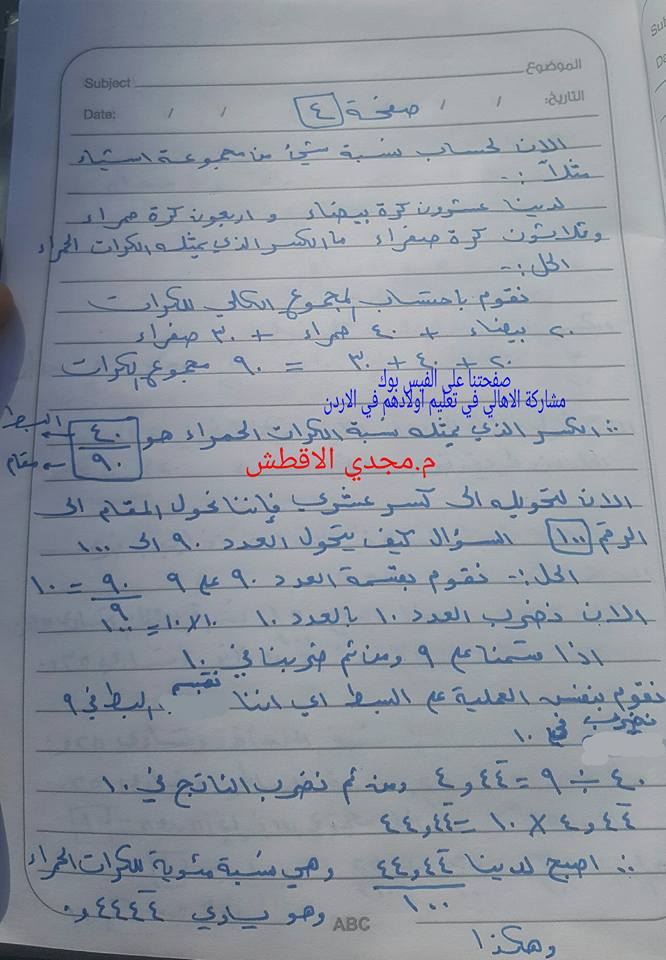 الموضوع
Subject
التاريخ: / /
Date: / /
صفحة ٤
الان لحساب نسبة شيئ من مجموعة اشياء
مثلاً :-
لدينا عشرون كرة بيضاء و اربعون كرة حمراء
وثلاثون كرة صفراء ما الكسر الذي يمثله الكرات الحمراء
الحل :-
نقوم باحتساب المجموع الكلي للكرات
٢٠ بيضاء + ٤٠ حمراء + ٣٠ صفراء
٢٠ + ٤٠ + ٣٠ = ٩٠ مجموع الكرات
صفحتنا على الفيس بوك
مشاركة الاهالي في تعليم اولادهم في الاردن
∴ الكسر الذي يمثله نسبة الكرات الحمراء هو ٤٠/٩٠ ← البسط ← مقام
م.مجدي الاقطش
الان لتحويله الى كسر عشري فإننا نحول المقام الى
الرقم ١٠٠ السؤال كيف يتحول العدد ٩٠ الى ١٠٠
الحل :- نقوم بقسمة العدد ٩٠ على ٩ ٩٠/٩ = ١٠
الان نضرب العدد ١٠ بالعدد ١٠ ١٠×١٠ = ١٠٠
اذا قسمنا على ٩ ومن ثم ضربنا في ١٠
نقوم بنفس العملية على البسط اي اننا نقسم البسط في ٩
نضرب في ١٠
٤٠ ÷ ٩ = ٤,٤٤ ومن ثم نضرب الناتج في ١٠
٤,٤٤ × ١٠ = ٤٤,٤٤
∴ اصبح لدينا ٤٤,٤٤/١٠٠ وهي نسبة مئوية للكرات الحمراء
وهو يساوي ٠,٤٤٤٤
ABC
وهكذا